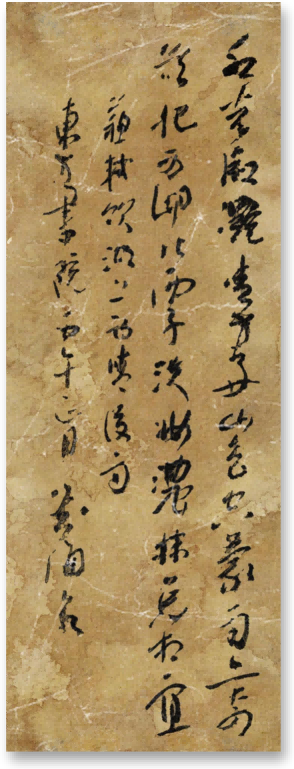 水光瀲灩晴方好山色空蒙雨亦奇
欲把西湖比西子淡妝濃抹總相宜
蘇軾飲湖上初晴後雨
東方書院丙午